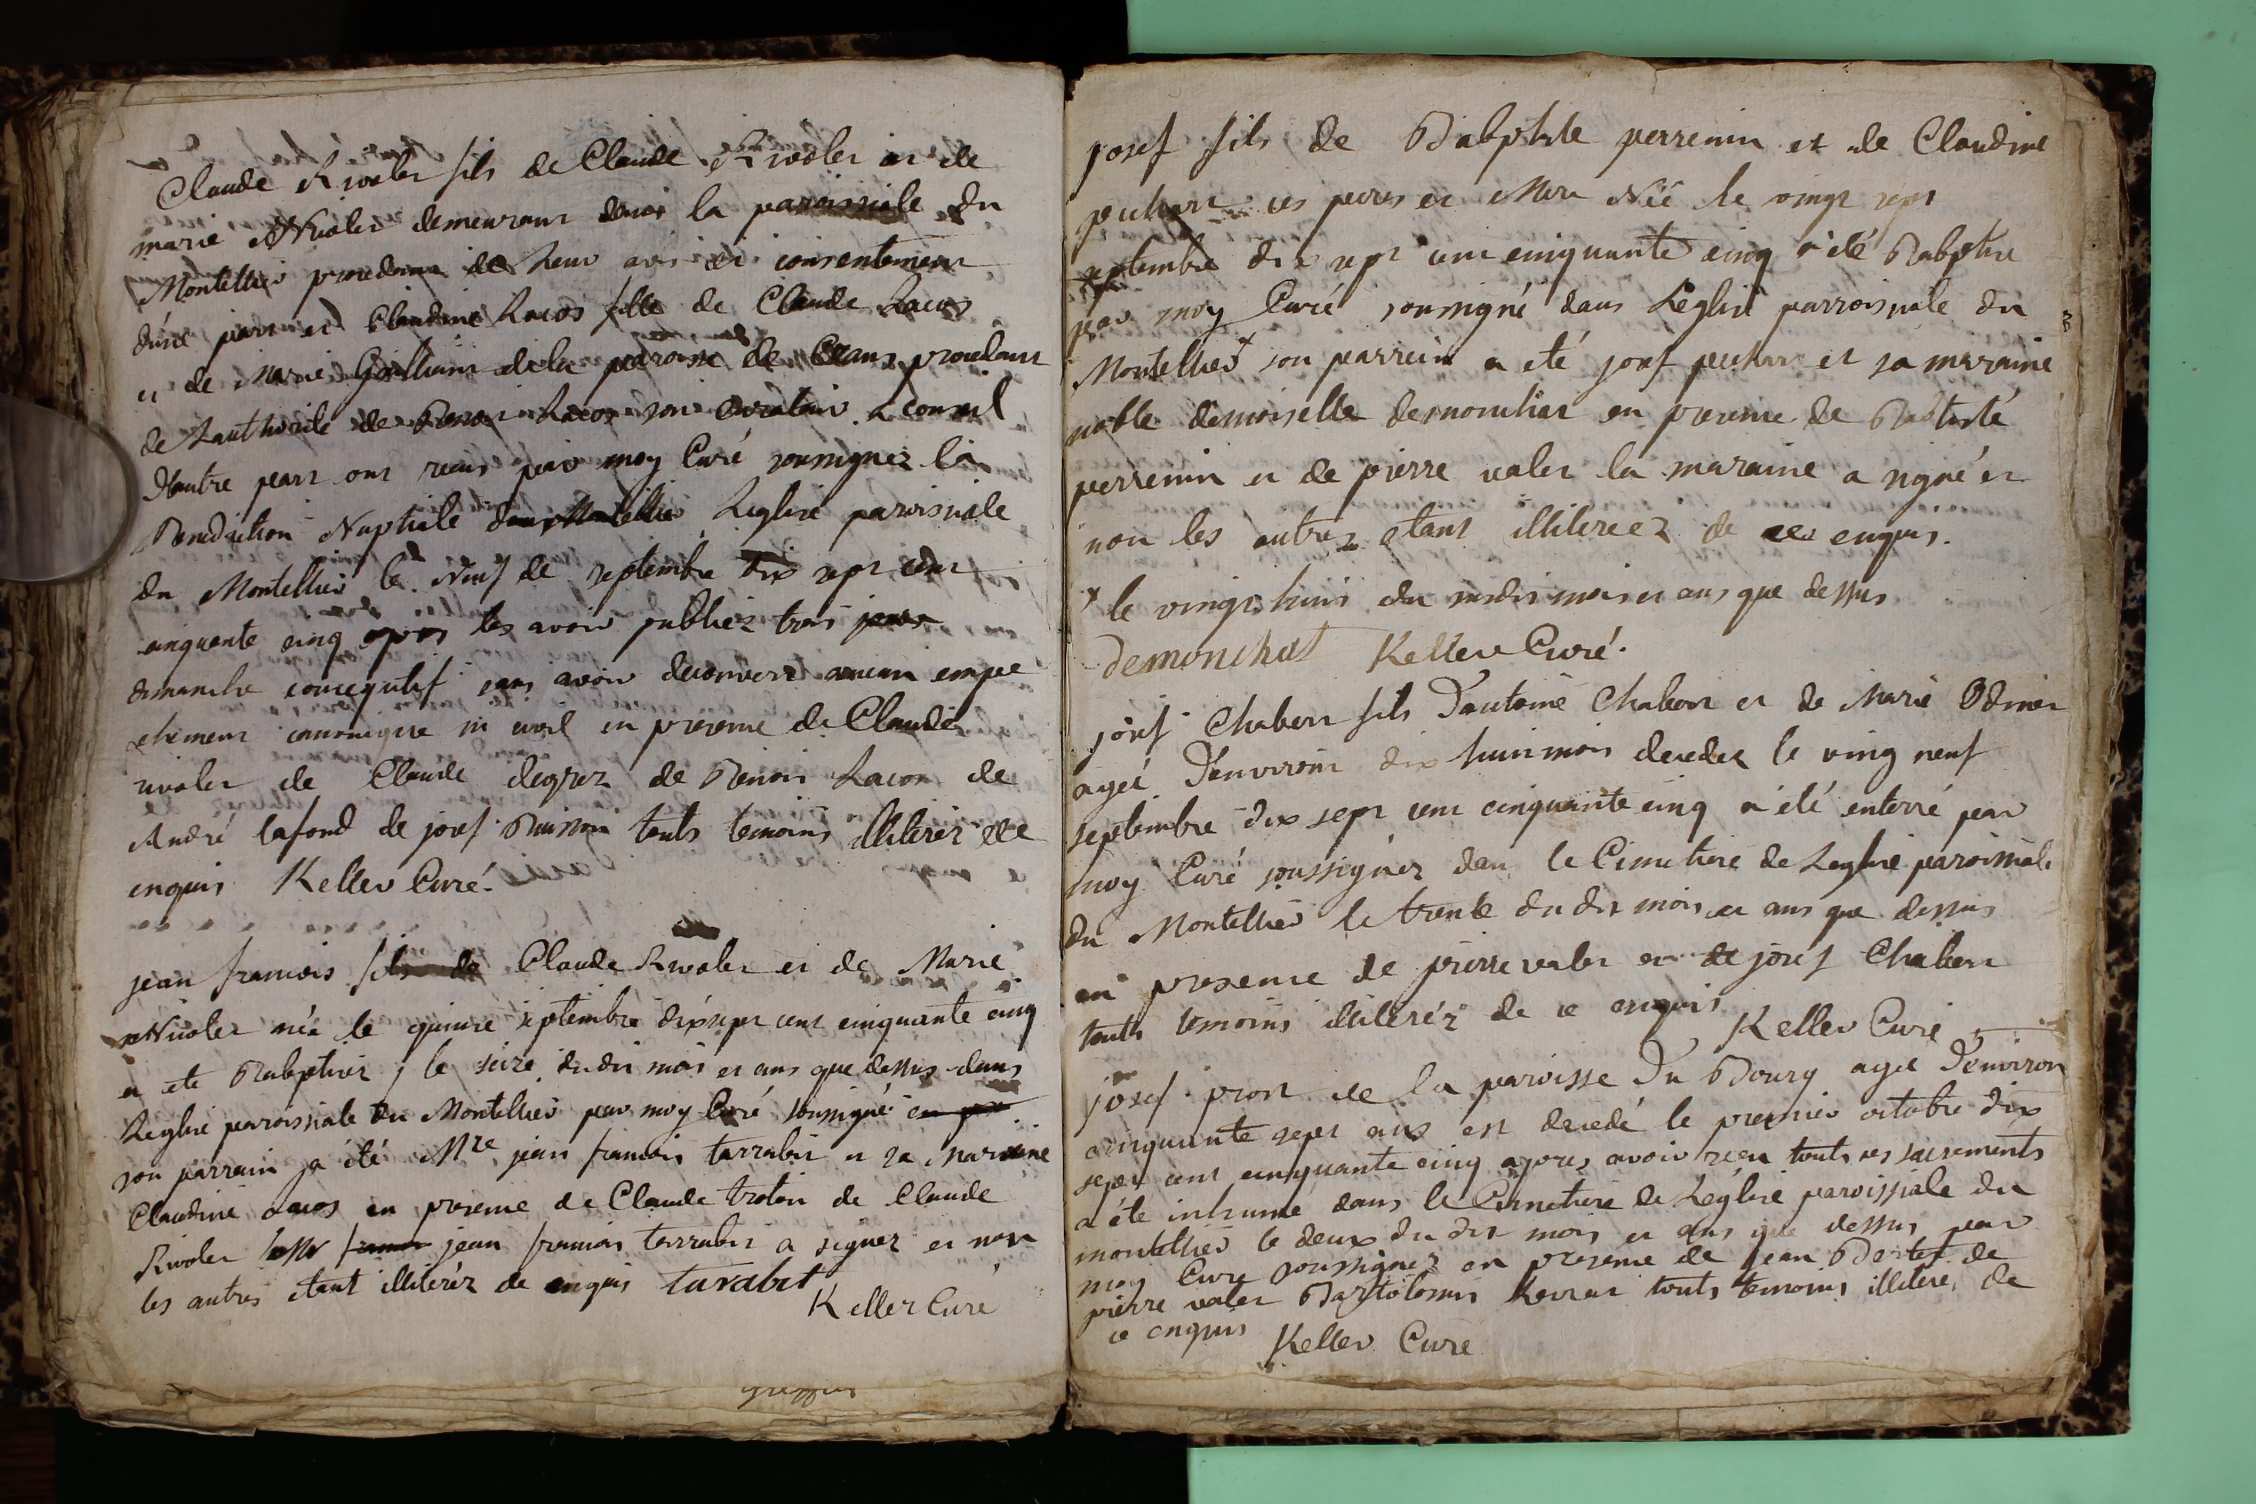 Claude Rivolet fils de Claude Rivolet et de
marie Nicolet demeurant dans la paroissiale du
Montellier procedant de leur avis et consentement
d'une part et Claudine Lacos fille de Claude Lacos
et de Marie de la paroisse de Crans procedant
de Lauthorité de Benoit Lacos son Curateur conseil
d'autre part ont recus par moy Curé soussignez la
Benediction Nuptiale Leglise paroissiale
du Montellier le Neuf de septembre dix sept cent
cinquante cinq apres les avoir publiez trois
dimanche consequtif sans avoir decouvert aucun empe
chement canonique ni civil en presence de Claude
rivolet de Claude degrez de Benoit Lacos de
André lafond de josef Buisson touts temoins illiterez de
enquis Keller Curé.
jean francois fils de Claude Rivolet et de Marie
Nicolet née le quinze septembre dixsept cent cinquante cinq
a ete Babptisez le seize dudit mois et ans que dessus dans
Leglise paroissiale du Montellier par moy Curé soussigné
son parrain a été Mre jean francois tarrabit et sa Maraine
Claudine Lacos en presence de Claude trotin de Claude
Rivolet jean francois terrabit a signez et non
les autres etant illiteréz de enquis tarabit
Keller Curé
josef fils de Babptiste perrenin et de Claudine
pichat ces peres et Mere Née le vingt sept
septembre dix sept cent cinquante cinq a été Babptise
par moy Curé soussigné dans Leglise parroissiale du
Montellier + son parrein a eté josef pichat et sa maraine
noble demoiselle demonchat en presence de Babtiste
perrenin et de pierre valet la maraine a signé et
non les autres etant illiterez de ce enquis.
+ le vingt huit du susdit mois et ans que dessus
Demonchat Keller Curé.
josef Chabert fils d'antoine Chabert et de Marie
agée d'environ dix huit mois decedez le ving neuf
septembre dix sept cent cinquante cinq a été enterré par
moy Curé soussignéz dan le Cimetiere de Leglise paroissiale
du Montellier le trente du dit mois et ans que dessus
en presence de pierre valet et de josef Chabert
touts temoins illiteréz de ce enquis
Keller Curé
josef prost de la paroisse du Bourg agée d'environ
cinquante sept ans est decedé le premier octobre dix
sept cent cinquante cinq apres avoir recu touts ses sacrements
a été inhumé dans le Cimetiere de Léglise paroissiale du
montellier le deux du dit mois et ans que dessus par
moy Curé soussignez en presence de jean de
pierre valet Bartolomis touts temoins illitere de
ce enquis Keller Curé